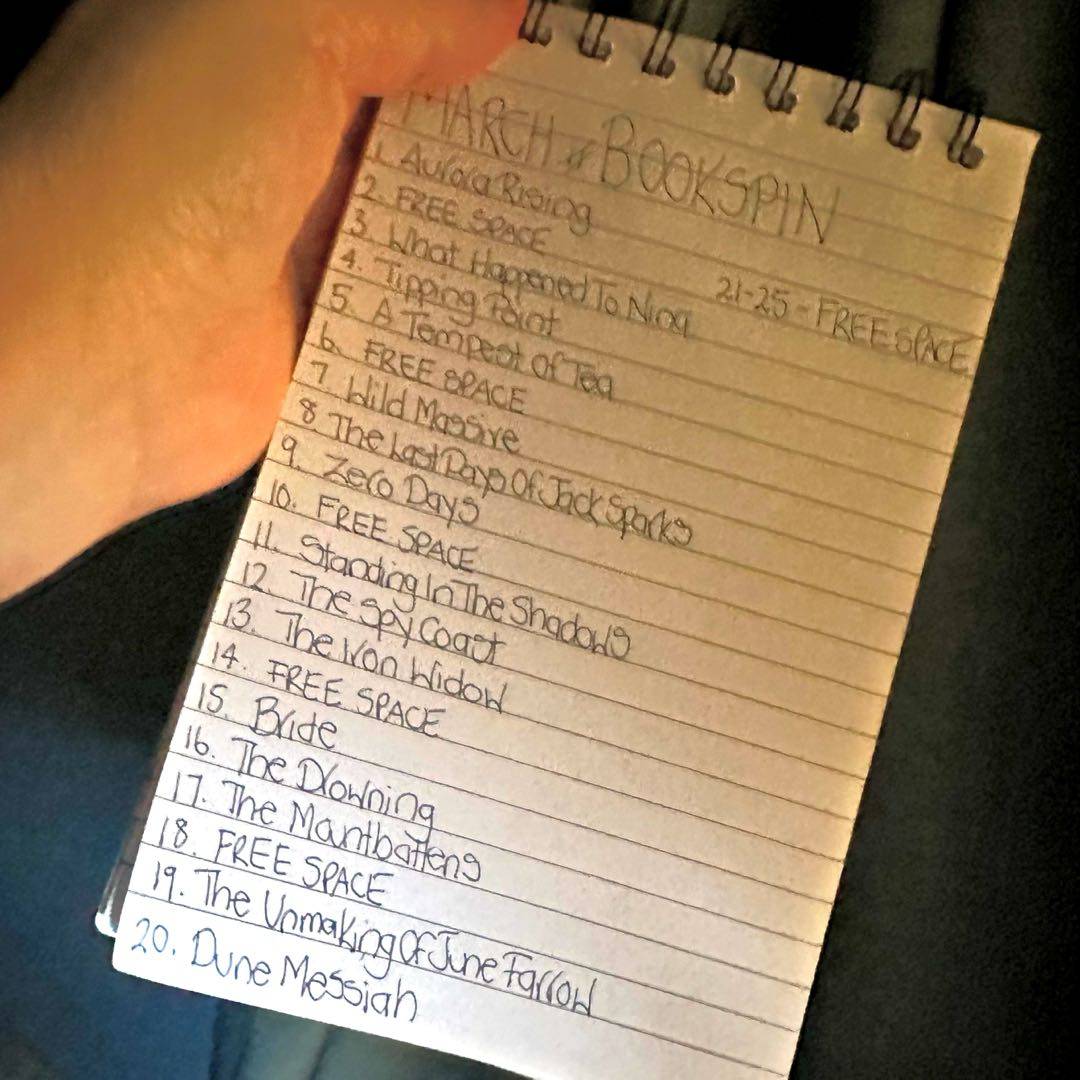 MARCH #BOOKSPIN
1. Aurora Rising
2. FREE SPACE
3. What Happened To Nina
21-25 - FREE SPACE
4. Tipping Point
5. A Tempest Of Tea
6. FREE SPACE
7. Wild Massive
8 The Last Days Of Jack Sparks
9. Zero Days
10. FREE SPACE
11. Standing In The Shadows
12. The Spy Coast
13. The Iron Widow
14. FREE SPACE
15. Bride
16. The Drowning
17. The Mantbattens
18. FREE SPACE
19. The Unmaking Of June Farrow
20. Dune Messiah